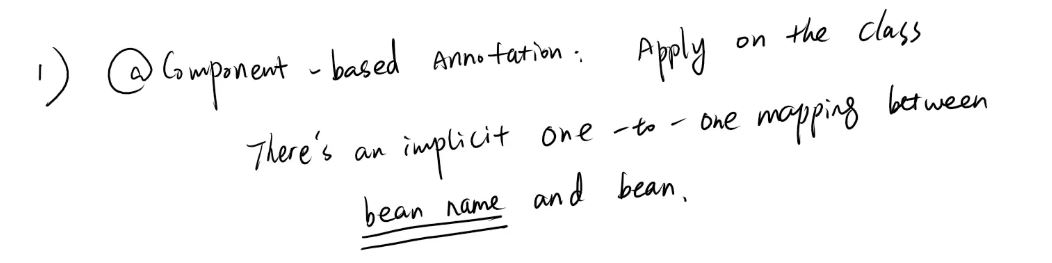 1) @Component-based Annotation: Apply on the class
There's an implicit one-to-one mapping between
bean name and bean.